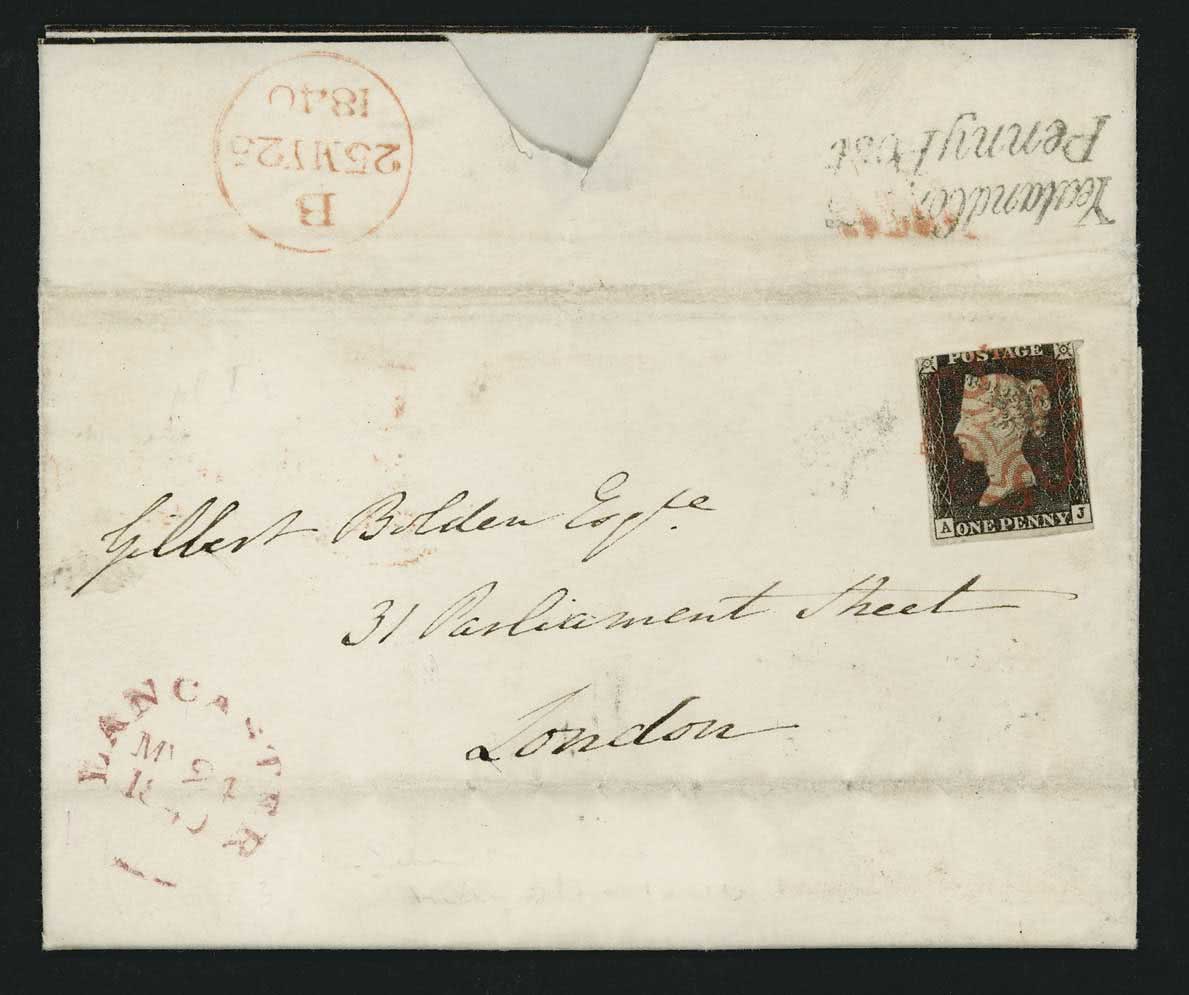 B
25MY25
1840
Yealand Co
Penny Post
POSTAGE
A ONE PENNY J
Gilbert Bolden Esqre
31 Parliament Street
London
LANCASTER